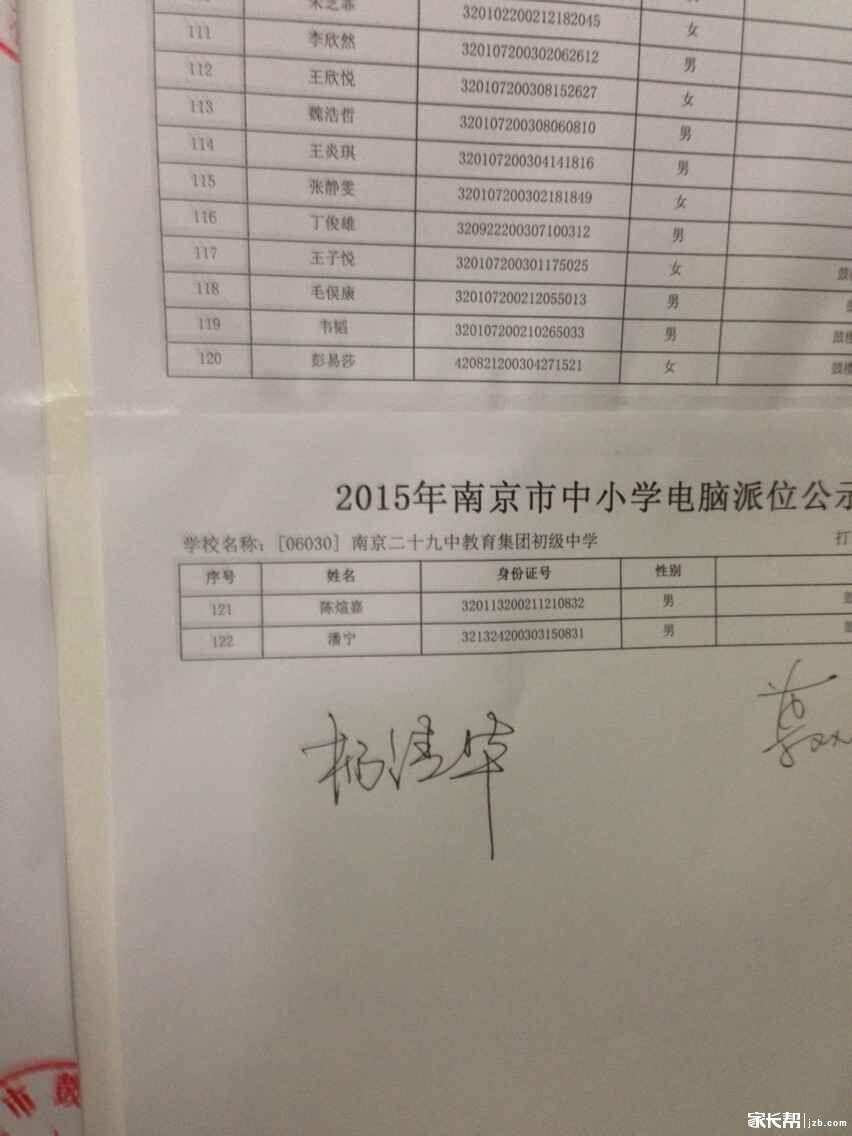 320102200212182045 女
111 李欣然 320107200302062612 男
112 王欣悦 320107200308152627 女
113 魏浩哲 320107200308060810 男
114 王炎琪 320107200304141816 男
115 张静雯 320107200302181849 女
116 丁俊雄 320922200307100312 男
117 王子悦 320107200301175025 女
118 毛俣康 320107200212055013 男
119 韦韬 320107200210265033 男 鼓楼
120 彭易莎 420821200304271521 女 鼓楼
2015年南京市中小学电脑派位公示
学校名称: [06030] 南京二十九中教育集团初级中学 打
序号 姓名 身份证号 性别
121 陈煊嘉 320113200211210832 男
122 潘宁 321324200303150831 男
杨清华
家长帮 jzb.com